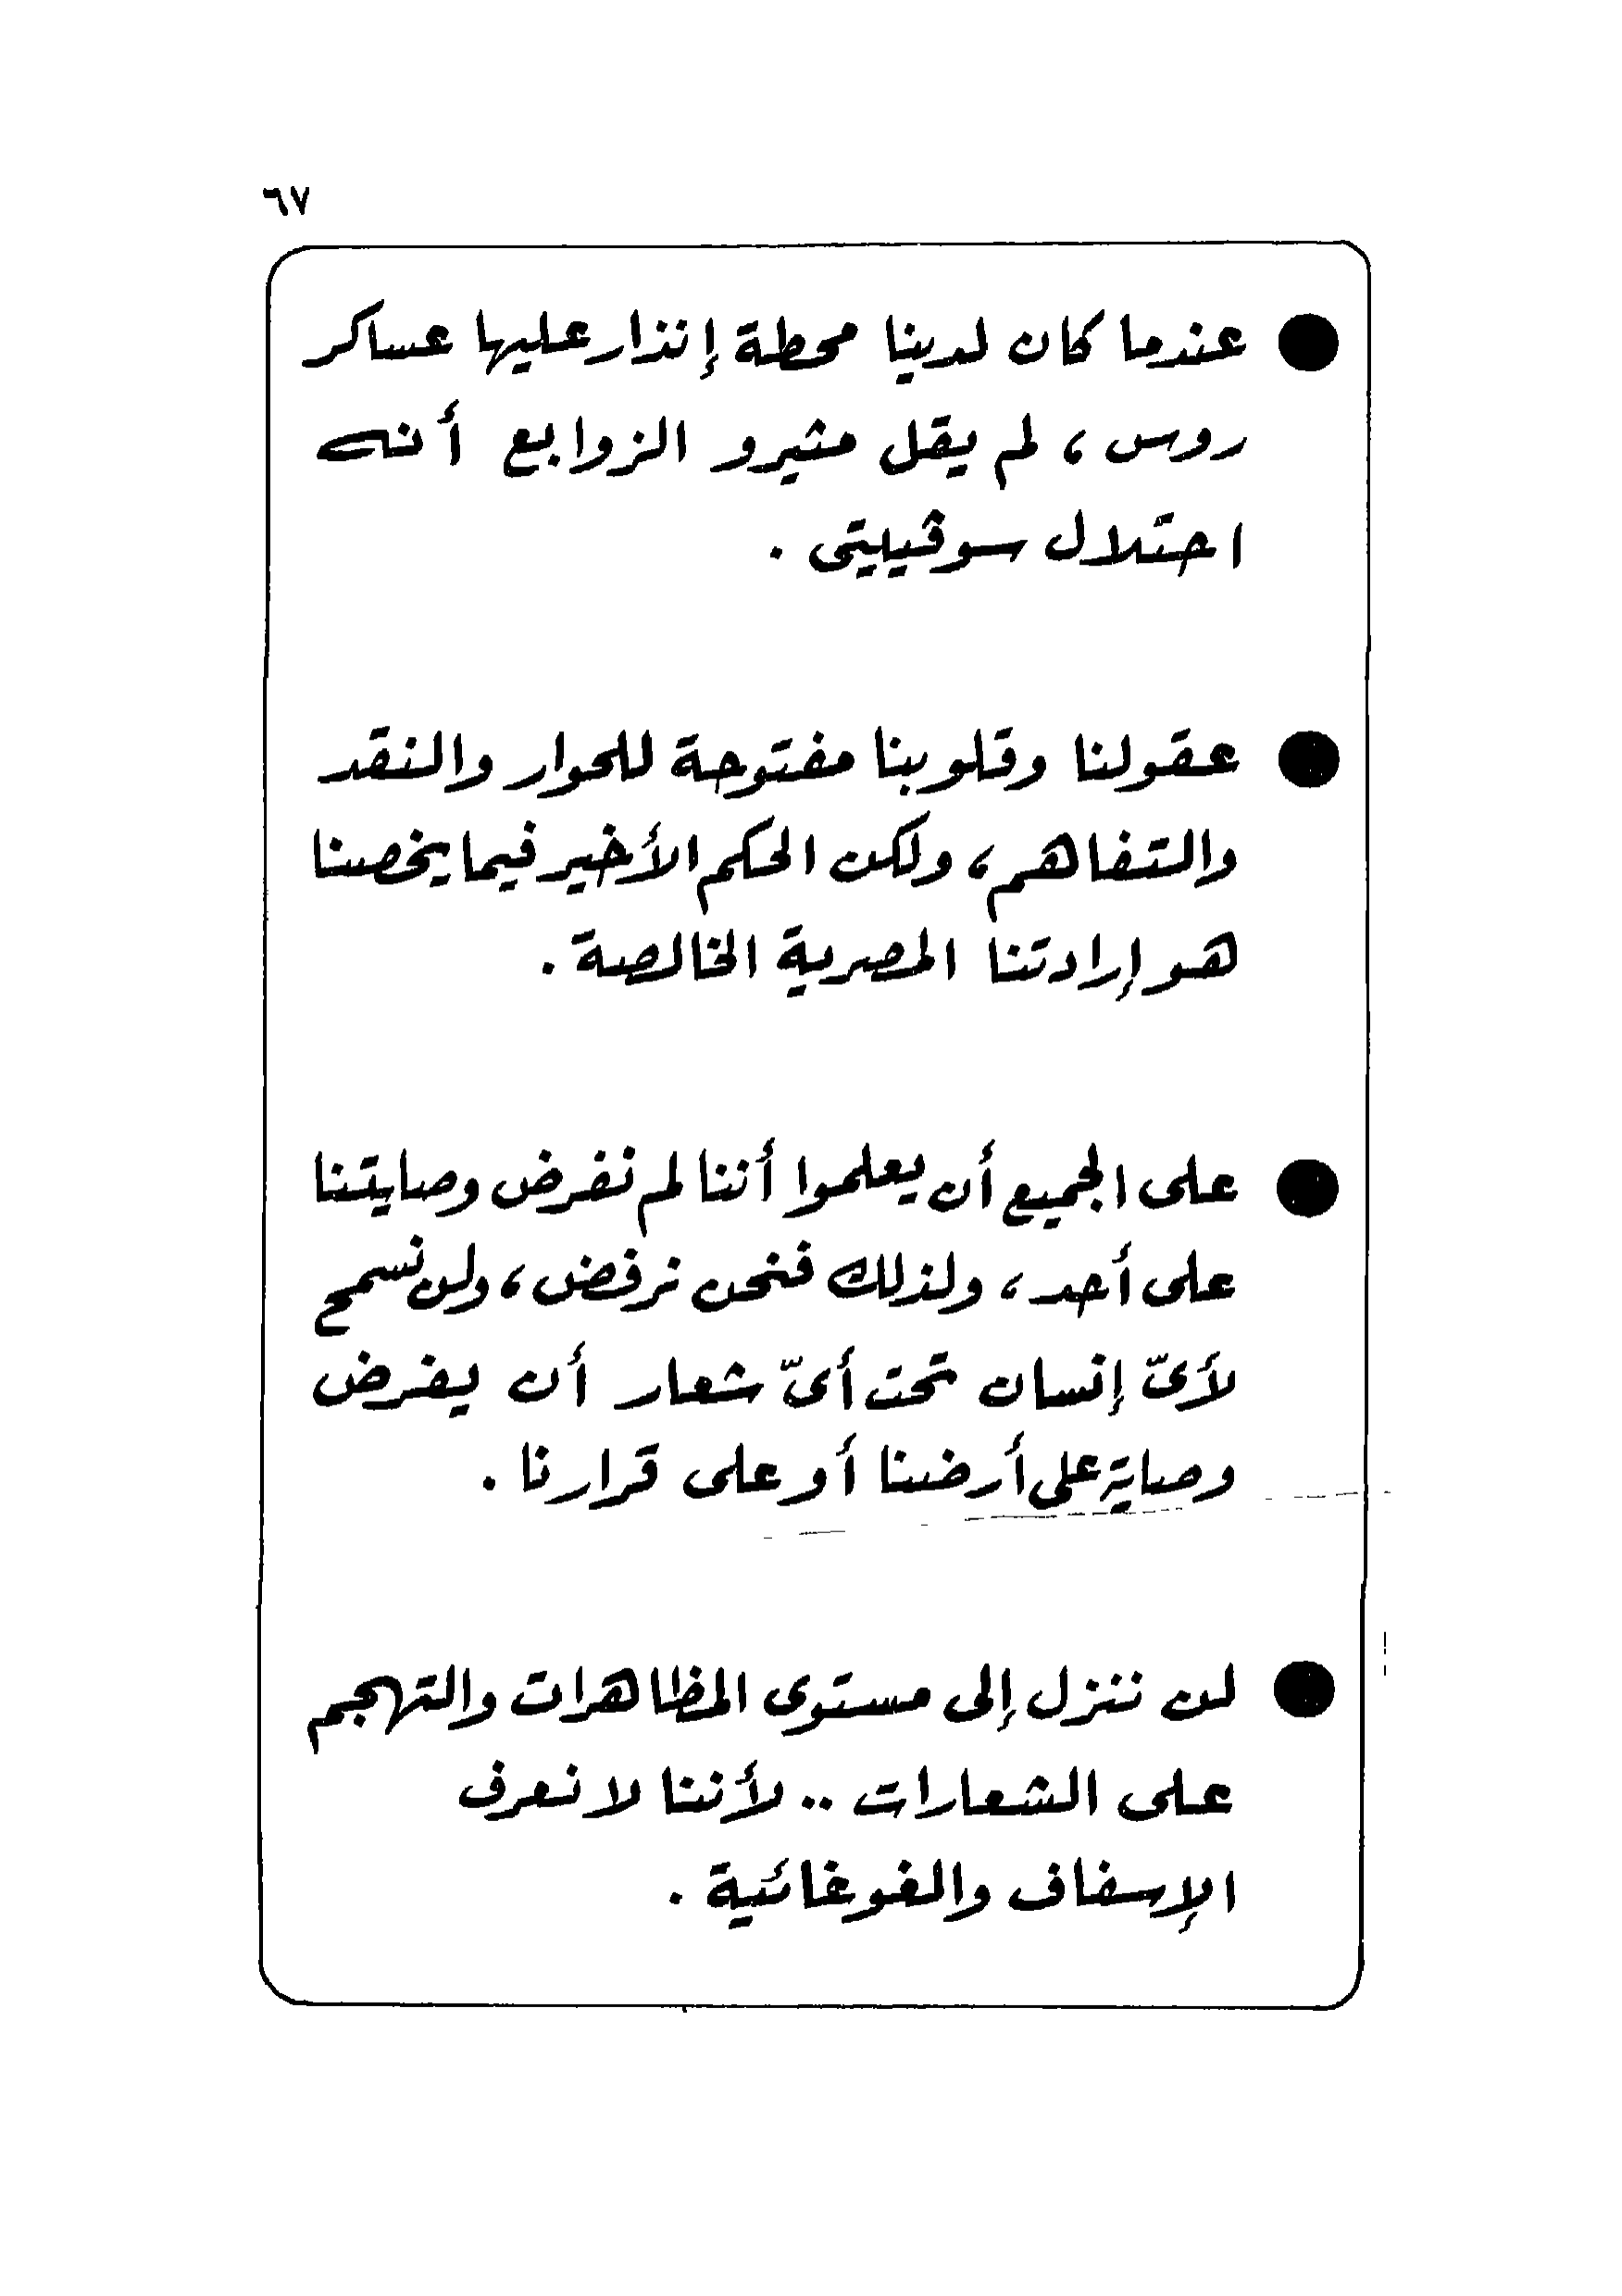 ٦٧
● عندما كان لدينا محطة إنذار عليها عساكر
روس ، لم يقل مثيرو الزوابع أنه
احتلال سوڤييتى .
● عقولنا وقلوبنا مفتوحة للحوار والنقد
والتفاهم ، ولكن الحكم الأخير فيما يخصنا
هو إرادتنا المصرية الخالصة .
● على الجميع أن يعلموا أننا لم نفرض وصايتنا
على أحد ، ولذلك فنحن نرفض ، ولن نسمح
لأىّ إنسان تحت أىّ شعار أن يفرض
وصاية على أرضنا أو على قرارنا .
● لن ننزل إلى مستوى المظاهرات والتهجم
على الشعارات .. لأننا لا نعرف
الإسفاف والغوغائية .